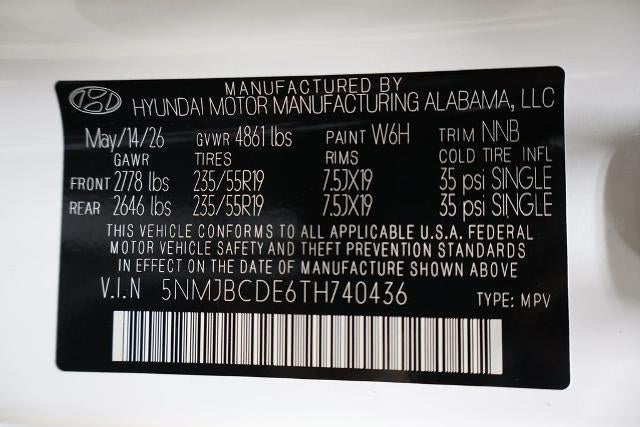 MANUFACTURED BY
HYUNDAI MOTOR MANUFACTURING ALABAMA, LLC
May/14/26 GVWR 4861 lbs PAINT W6H TRIM NNB
GAWR TIRES RIMS COLD TIRE INFL
FRONT 2778 lbs 235/55R19 7.5JX19 35 psi SINGLE
REAR 2646 lbs 235/55R19 7.5JX19 35 psi SINGLE
THIS VEHICLE CONFORMS TO ALL APPLICABLE U.S.A. FEDERAL
MOTOR VEHICLE SAFETY AND THEFT PREVENTION STANDARDS
IN EFFECT ON THE DATE OF MANUFACTURE SHOWN ABOVE
V.I.N 5NMJBCDE6TH740436 TYPE: MPV